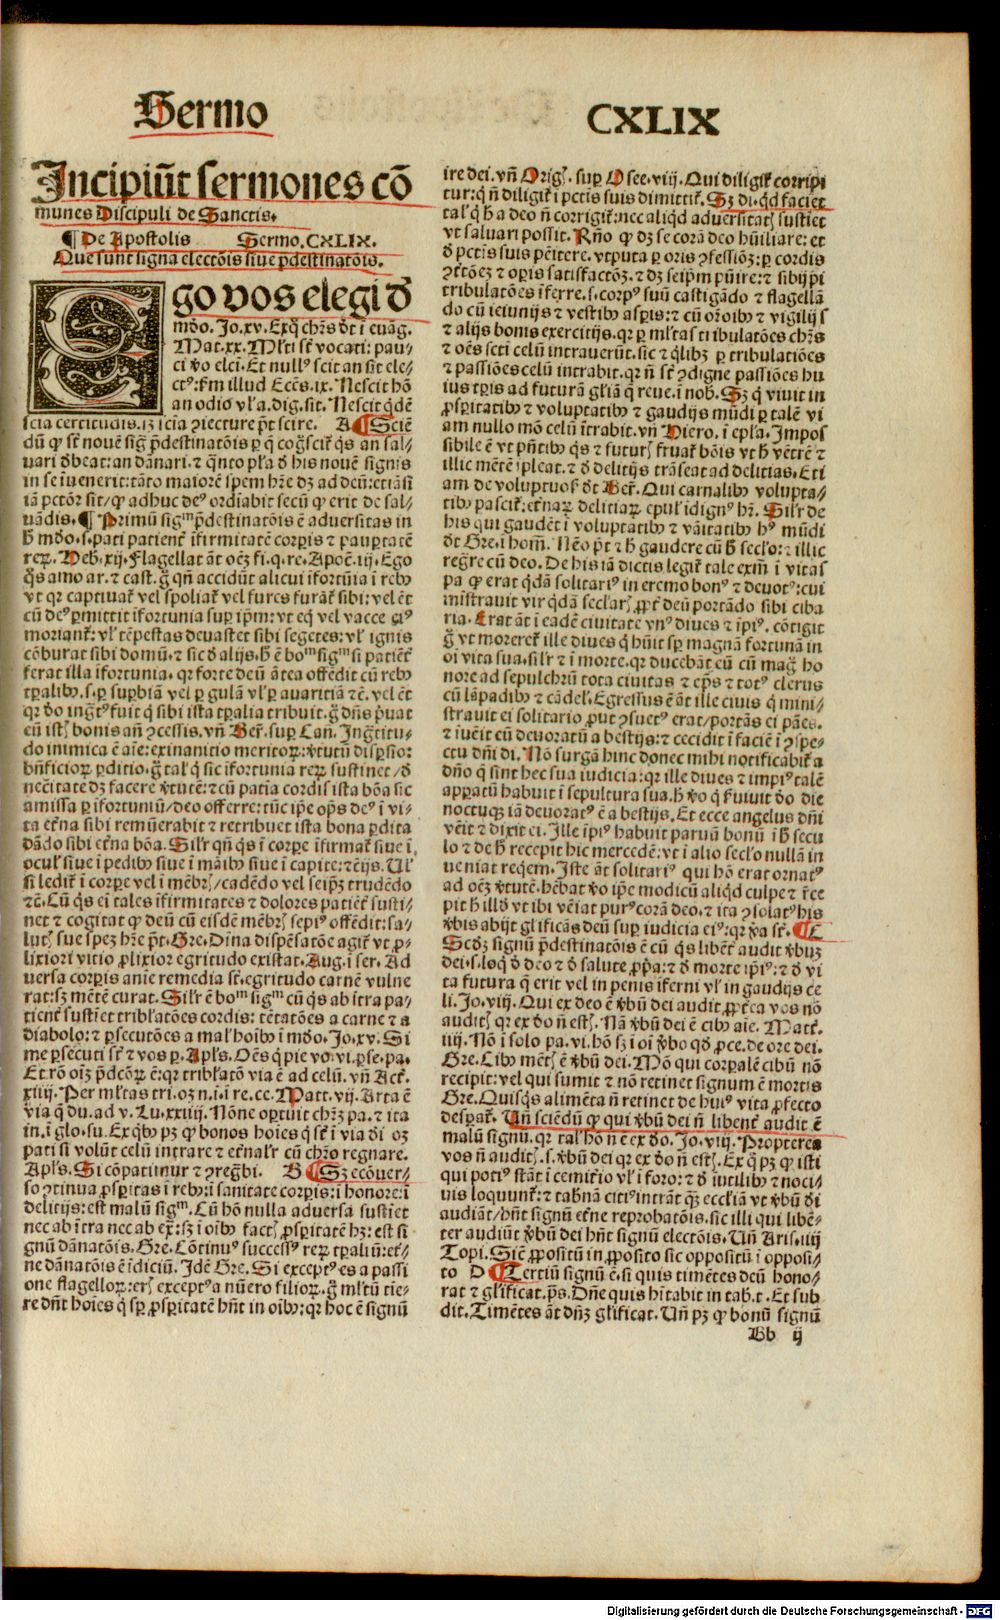 Sermo CXLIX
Incipiūt sermones cō
munes Discipuli de Sanctis.
¶ De Apostolis Sermo.CXLIX.
Que sunt signa electōis siue p̄destinatōis.
Ego vos elegi đ
mđo. Jo.xv. Exq̄ chr̄s đt ī euāg.
Mat.xx. Ml̄ti sc̄t vocati: pau/
ci ꝟo elci. Et nullꝰ scit an sit ele/
ctꝰ: fm illud Ecēs.ix. Nescit hō
an odio vl̄ a. dig. sit. Nescit q̄dē
scīa certitudīs. lꝫ īcīa ꝯiecture pt̄ scire. A ¶ Sciē
dū ꝙ sc̄t nouē siḡ p̄destinatōis
uari đbeat: an dānari. ⁊ q̄nto pl̄a đ his nouē signis
in se īuenerit: tāto maiorē spem hr̄e dꝫ ad deū: etiāsi
iā pctōr sit/ ꝙ adhuc deꝰ ordīabit secū ꝙ erit de sal/
uādis. ¶ Primū sigᵐ p̄destinatōis ē aduersitas in
ħ mđo. s. pati patient̄ īfirmitatē corꝑis ⁊ pauꝑtatē
reꝝ. Heb.xij. Flagellat āt oēꝫ fi. q. re. Apoc̄.iij. Ego
q̄s amo ar. ⁊ cast. ḡ qn̄ accidūt alicui īfortūia ī reb⁹
vt qr captiuat̄ vel spoliat̄ vel fures furāt̄ sibi: vel ēt
cū deꝰ ꝑmittit īfortunia suꝑ ip̄m: vt eq̄ vel vacce eiꝰ
moriant̄: vl̄ tēpestas deuastet sibi segetes: vl̄ ignis
cōburat sibi domū. ⁊ sic đ alijs. ħ ē boᵐ sigᵐ si patiēt̄
ferat illa īfortunia. qr forte deū ātea offēdit cū reb⁹
tꝑalib⁹. s. ꝑ suꝑbiā vel ꝑ gulā vl̄ ꝑ auaritiā ⁊c̄. vel ēt
qr đo ing̈tꝰ fuit q̄ sibi ista tꝑalia tribuit. ḡ dn̄s p̄uat
eū istꝭ bonis an̄ ꝯcessis. vn̄ Ber̄. suꝑ Can̄. Ing̈titu/
do inimica ē aīe: exinanitio meritoꝝ: ꝟtutū disꝑsio:
bn̄ficioꝝ ꝑditio. ḡ tal̄ q̄ sic īfortunia reꝝ sustinet/ đ
nec̄itate dꝫ facere ꝟtutē: ⁊ cū patīa cordis ista bōa sic
amissa ꝑ īfortuniū/ deo offerre: tūc ip̄e oꝑs deꝰ ī vi/
ta et̄na sibi remūerabit ⁊ retribuet ista bona ꝑdita
dādo sibi et̄na bōa. Sil̄r qn̄ q̄s ī corꝑe īfirmat̄ siue ī
ocul̄ siue ī pedib⁹ siue ī māib⁹ siue ī capite: ⁊ ēijs. Ul̄
si ledit̄ ī corꝑe vel ī mēbrꝭ/ cadēdo vel seip̄ꝫ trudēdo
⁊c̄. Cū q̄s ei tales īfirmitates ⁊ dolores patiēt̄ susti/
net ⁊ cogitat ꝙ deū cū eisdē mēbrꝭ sepiꝰ offēdit: sa/
lutꝭ sue speꝫ hr̄e pt̄. Gre. Diīna dispēsatōe agit̄ vt ꝓ/
lixiori vitio ꝓlixior egritudo existat. Aug. ī ser. Ad
versa corꝑis anīe remedia sc̄t. egritudo carnē vulne
rat: sꝫ mētē curat. Sil̄r ē boᵐ sigᵐ cū q̄s ab ītra pa/
tient̄ sustiet tribl̄atōes cordis: tētatōes a carne ⁊ a
diabolo: ⁊ ꝑsecutōes a mal̄ hoīb⁹ ī mđo. Jo.xv. Si
me ꝑsecuti sc̄t ⁊ vos ꝑ. Apl̄s. Oēs q̄ pie vo. vi. ꝑse. pa.
Et rō oīꝫ p̄dcōꝝ ē: qr tribl̄atō via ē ad celū. vn̄ Act̄.
xiiij. Per ml̄tas tri. oꝫ n. i. ī re. ce. Matt̄. vij. Arta ē
via q̄ du. ad v. Lu.xxiiij. Nōne oꝑtuit chr̄ꝫ pa. ⁊ ita
in. ī glo. su. Ex qb⁹ pꝫ ꝙ bonos hoīes q̄ sc̄t ī via đi oꝫ
pati si volūt celū intrare ⁊ et̄nalr̄ cū chr̄o regnare.
Apl̄s. Si cōpatimur ⁊ ꝯregn̄bi. B ¶ Sꝫ ecōuer/
so ꝯtinua ꝓsꝑitas ī reb⁹: ī sanitate corꝑis: ī honore: ī
delitijs: est malū sigᵐ. Cū hō nulla aduersa sustiet
nec ab ītra nec ab ex̄: sꝫ ī oīb⁹ factꝭ ꝓsꝑitatē hꝫ: est si
gnū dānatōis. Gre. Cōtinuꝰ successꝰ reꝝ tꝑaliū: et̄/
ne dānatōis ē īdiciū. Idē Gre. Si exceptꝰ es a passi
one flagelloꝝ: erꝭ exceptꝰ a nūero filioꝝ. ḡ ml̄tū tie/
re dn̄t hoīes q̄ sꝑ ꝓsꝑitatē hn̄t in oīb⁹: qr hoc ē signū
ire dei. vn̄ Oriḡ. suꝑ Osee.viij. Qui diligit̄ corripi
tur: q̄ n̄ diligit̄ ī pctīs suis dimittit̄. Sꝫ di. qd faciet
tal̄ q̄ ħ a deo n̄ corrigit̄: nec aliqd aduersitatꝭ sustiet
vt saluari possit. Rn̄o ꝙ dꝫ se corā deo hūiliare: et
đ pctīs suis pēitere. vtputa ꝑ oris ꝯfessiōꝫ: ꝑ cordis
ꝯt̄tōeꝫ ⁊ oꝑis satisfactōꝫ. ⁊ dꝫ seip̄m pūire: ⁊ sibijpi
tribulatōes īferre. s. corpꝰ suū castigādo ⁊ flagellā
do cū ieiunijs ⁊ vestib⁹ aspis: ⁊ cū or̄oīb⁹ ⁊ vigilijs
⁊ alijs bonis exercitijs. qr ꝑ ml̄tas tribulatōes chr̄s
⁊ oēs sc̄ti celū intrauerūt. sic ⁊ q̄libꝫ ꝑ tribulatiōes
⁊ passiōes celū intrabit. qr n̄ sc̄t ꝯdigne passiōes hu
ius tꝑis ad futurā gl̄iā q̄ reue. ī nob. Sꝫ q̄ viuit in
ꝓsꝑitatib⁹ ⁊ voluptatib⁹ ⁊ gaudijs mūdi ꝑ talē vi
am nullo mō celū ītrabit. vn̄ Hiero. ī epl̄a. Impos
sibile ē vt pn̄tib⁹ q̄s ⁊ futurꝭ fruat̄ bōis vt ħ vētrē ⁊
illic mētē īpleat. ⁊ đ delitijs trāseat ad delitias. Eti
am de voluptuosꝭ đt Ber̄. Qui carnalib⁹ volupta/
tib⁹ pascit̄: et̄naꝝ delitiaꝝ epul̄ īdignꝰ hr̄. Sil̄r de
his qui gaudēt ī voluptatib⁹ ⁊ vāitatib⁹ hꝰ mūdi
đt Gre. ī hom̄. Nēo pt̄ ⁊ ħ gaudere cū ħ secl̄o: ⁊ illic
regr̄e cū deo. De his iā dictis legit̄ tale exm̄ ī vitas
pa ꝙ erat q̄dā solitariꝰ in eremo bonꝰ ⁊ deuotꝰ: cui
mīstrauit vir q̄dā seclarꝭ ꝓpt̄ deū portādo sibi ciba
ria. Erat āt ī eadē ciuitate vnꝰ diues ⁊ īpiꝰ. cōtigit
ḡ vt moreret̄ ille diues q̄ hūit sꝑ magnā fortunā in
oī vita sua. sil̄r ⁊ ī morte. qr ducebāt eū cū mag̈ ho
nore ad sepulchrū tota ciuitas ⁊ ep̄s ⁊ totꝰ clerus
cū lāpadib⁹ ⁊ cādel̄. Egressus ē āt ille ciuis q̄ mini/
strauit ei solitario ꝓut ꝯsuetꝰ erat/ portās ei pāes.
⁊ iuēit eū deuoratū a bestijs: ⁊ cecidit ī faciē ī ꝯspe/
ctu dn̄i di. Nō surgā hinc donec mihi notificabit̄ a
dn̄o q̄ sint hec sua iudicia: qr ille diues ⁊ impiꝰ talē
apꝑatū habuit ī sepultura sua. ħ ꝟo q̄ ẜuiuit đo die
noctuqꝫ iā deuoratꝰ ē a bestijs. Et ecce angelus dn̄i
vēit ⁊ dixit ei. Ille īpiꝰ habuit paruū bonū ī ħ secu
lo ⁊ de ħ recepit hic mercedē: vt ī alio secl̄o nullā in
ueniat req̄em. Iste āt solitariꝰ qui hō erat ornatꝰ
ad oēꝫ ꝟtutē. hēbat ꝟo ip̄e modicū aliqd culpe ⁊ r̄ece
pit ħ illđ vt ibi vēiat purꝰ corā deo. ⁊ ita ꝯsolatꝰ his
ꝟbis abijt gl̄ificās deū suꝑ iudicia eiꝰ: qr ꝟa sc̄t. ¶ C
Secđꝫ signū p̄destinatōis ē cū q̄s libēt̄ audit ꝟbuꝫ
dei. s. loq̄ đ deo ⁊ đ salute ꝓp̄a: ⁊ đ morte ip̄iꝰ: ⁊ đ vi
ta futura q̄ erit vel in penis īferni vl̄ in gaudijs ce
li. Jo.viij. Qui ex deo ē ꝟbū dei audit. ꝓpt̄ea vos nō
auditꝭ qr ex đo n̄ estꝭ. Nā ꝟbū dei ē cib⁹ aīe. Matt̄.
iiij. Nō ī solo pa. vi. hō sꝫ ī oī ꝟbo qđ ꝓce. de ore dei.
Gre. Cib⁹ mētꝭ ē ꝟbū dei. Mō qui corꝑalē cibū nō
recipit: vel qui sumit ⁊ nō retinet signum ē mortis
Gre. Quisq̄s alimēta n̄ retinet de huiꝰ vita ꝓfecto
desꝑat̄. Un̄ sciēdū ꝙ qui ꝟbū dei n̄ libent̄ audit ē
malū signū. qr tal̄ hō n̄ ē ex đo. Jo.viij. Propterea
vos n̄ auditꝭ. s. ꝟbū dei qr ex đo n̄ estꝭ. Ex q̄ pꝫ ꝙ isti
qui potiꝰ stāt ī cemit̄io vl̄ ī foro: ⁊ đ iutilib⁹ ⁊ noci/
uis loquunt̄: ⁊ tabnā citiꝰ intrāt q̄ꝫ eccl̄iā vt ꝟbū đi
audiāt/ hn̄t signū et̄ne reprobatōis. sic illi qui libē/
ter audiūt ꝟbū dei hn̄t signū electōis. Un̄ Aris. iiij
Topi. Sic̄ ꝓpositū in ꝓposito sic oppositū ī opposi/
to D ¶ Tertiū signū ē. si quis timētes deū hono/
rat ⁊ gl̄ificat. p̄s. Dn̄e quis hītabit in tab. t. Et sub
dit. Timētes āt dn̄ꝫ gl̄ificat. Un̄ pꝫ ꝙ bonū signū
Bb ij
Digitalisierung gefördert durch die Deutsche Forschungsgemeinschaft - DFG